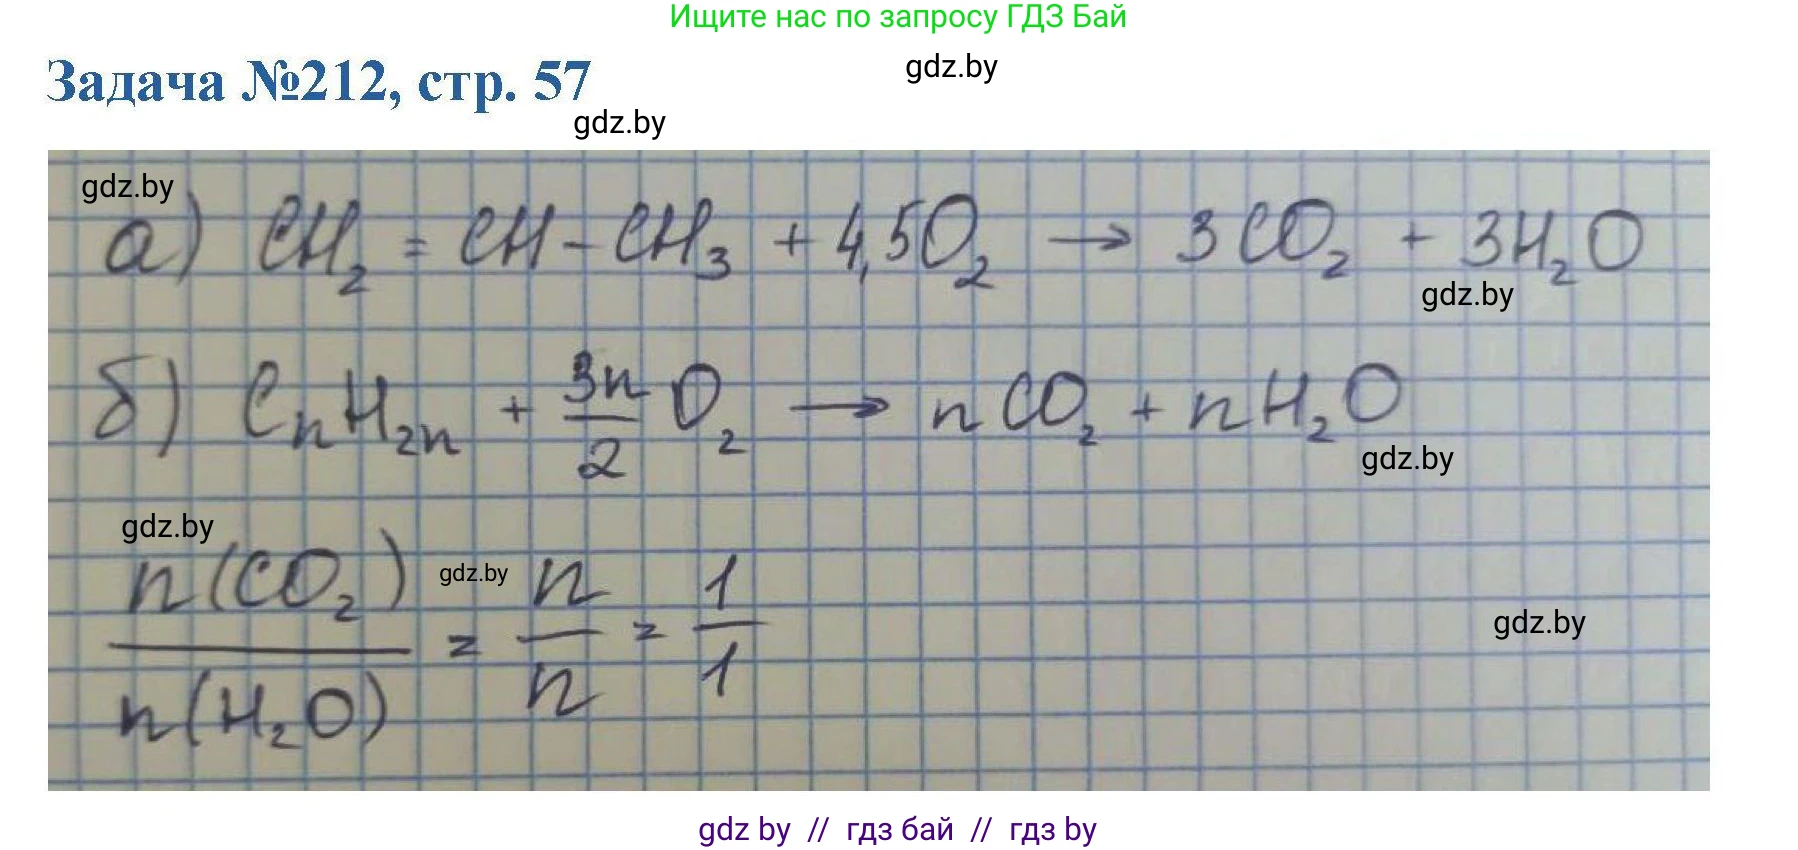 Ищите нас по запросу ГДЗ Бай
Задача №212, стр. 57
gdz.by
gdz.by
gdz.by
а) CH₂ = CH – CH₃ + 4,5O₂ → 3CO₂ + 3H₂O
gdz.by
б) CₙH₂ₙ + 3n/2 O₂ → nCO₂ + nH₂O
gdz.by
gdz.by
n(CO₂)/n(H₂O) = n/n = 1/1
gdz.by
gdz.by
gdz by // гдз бай // гдз by